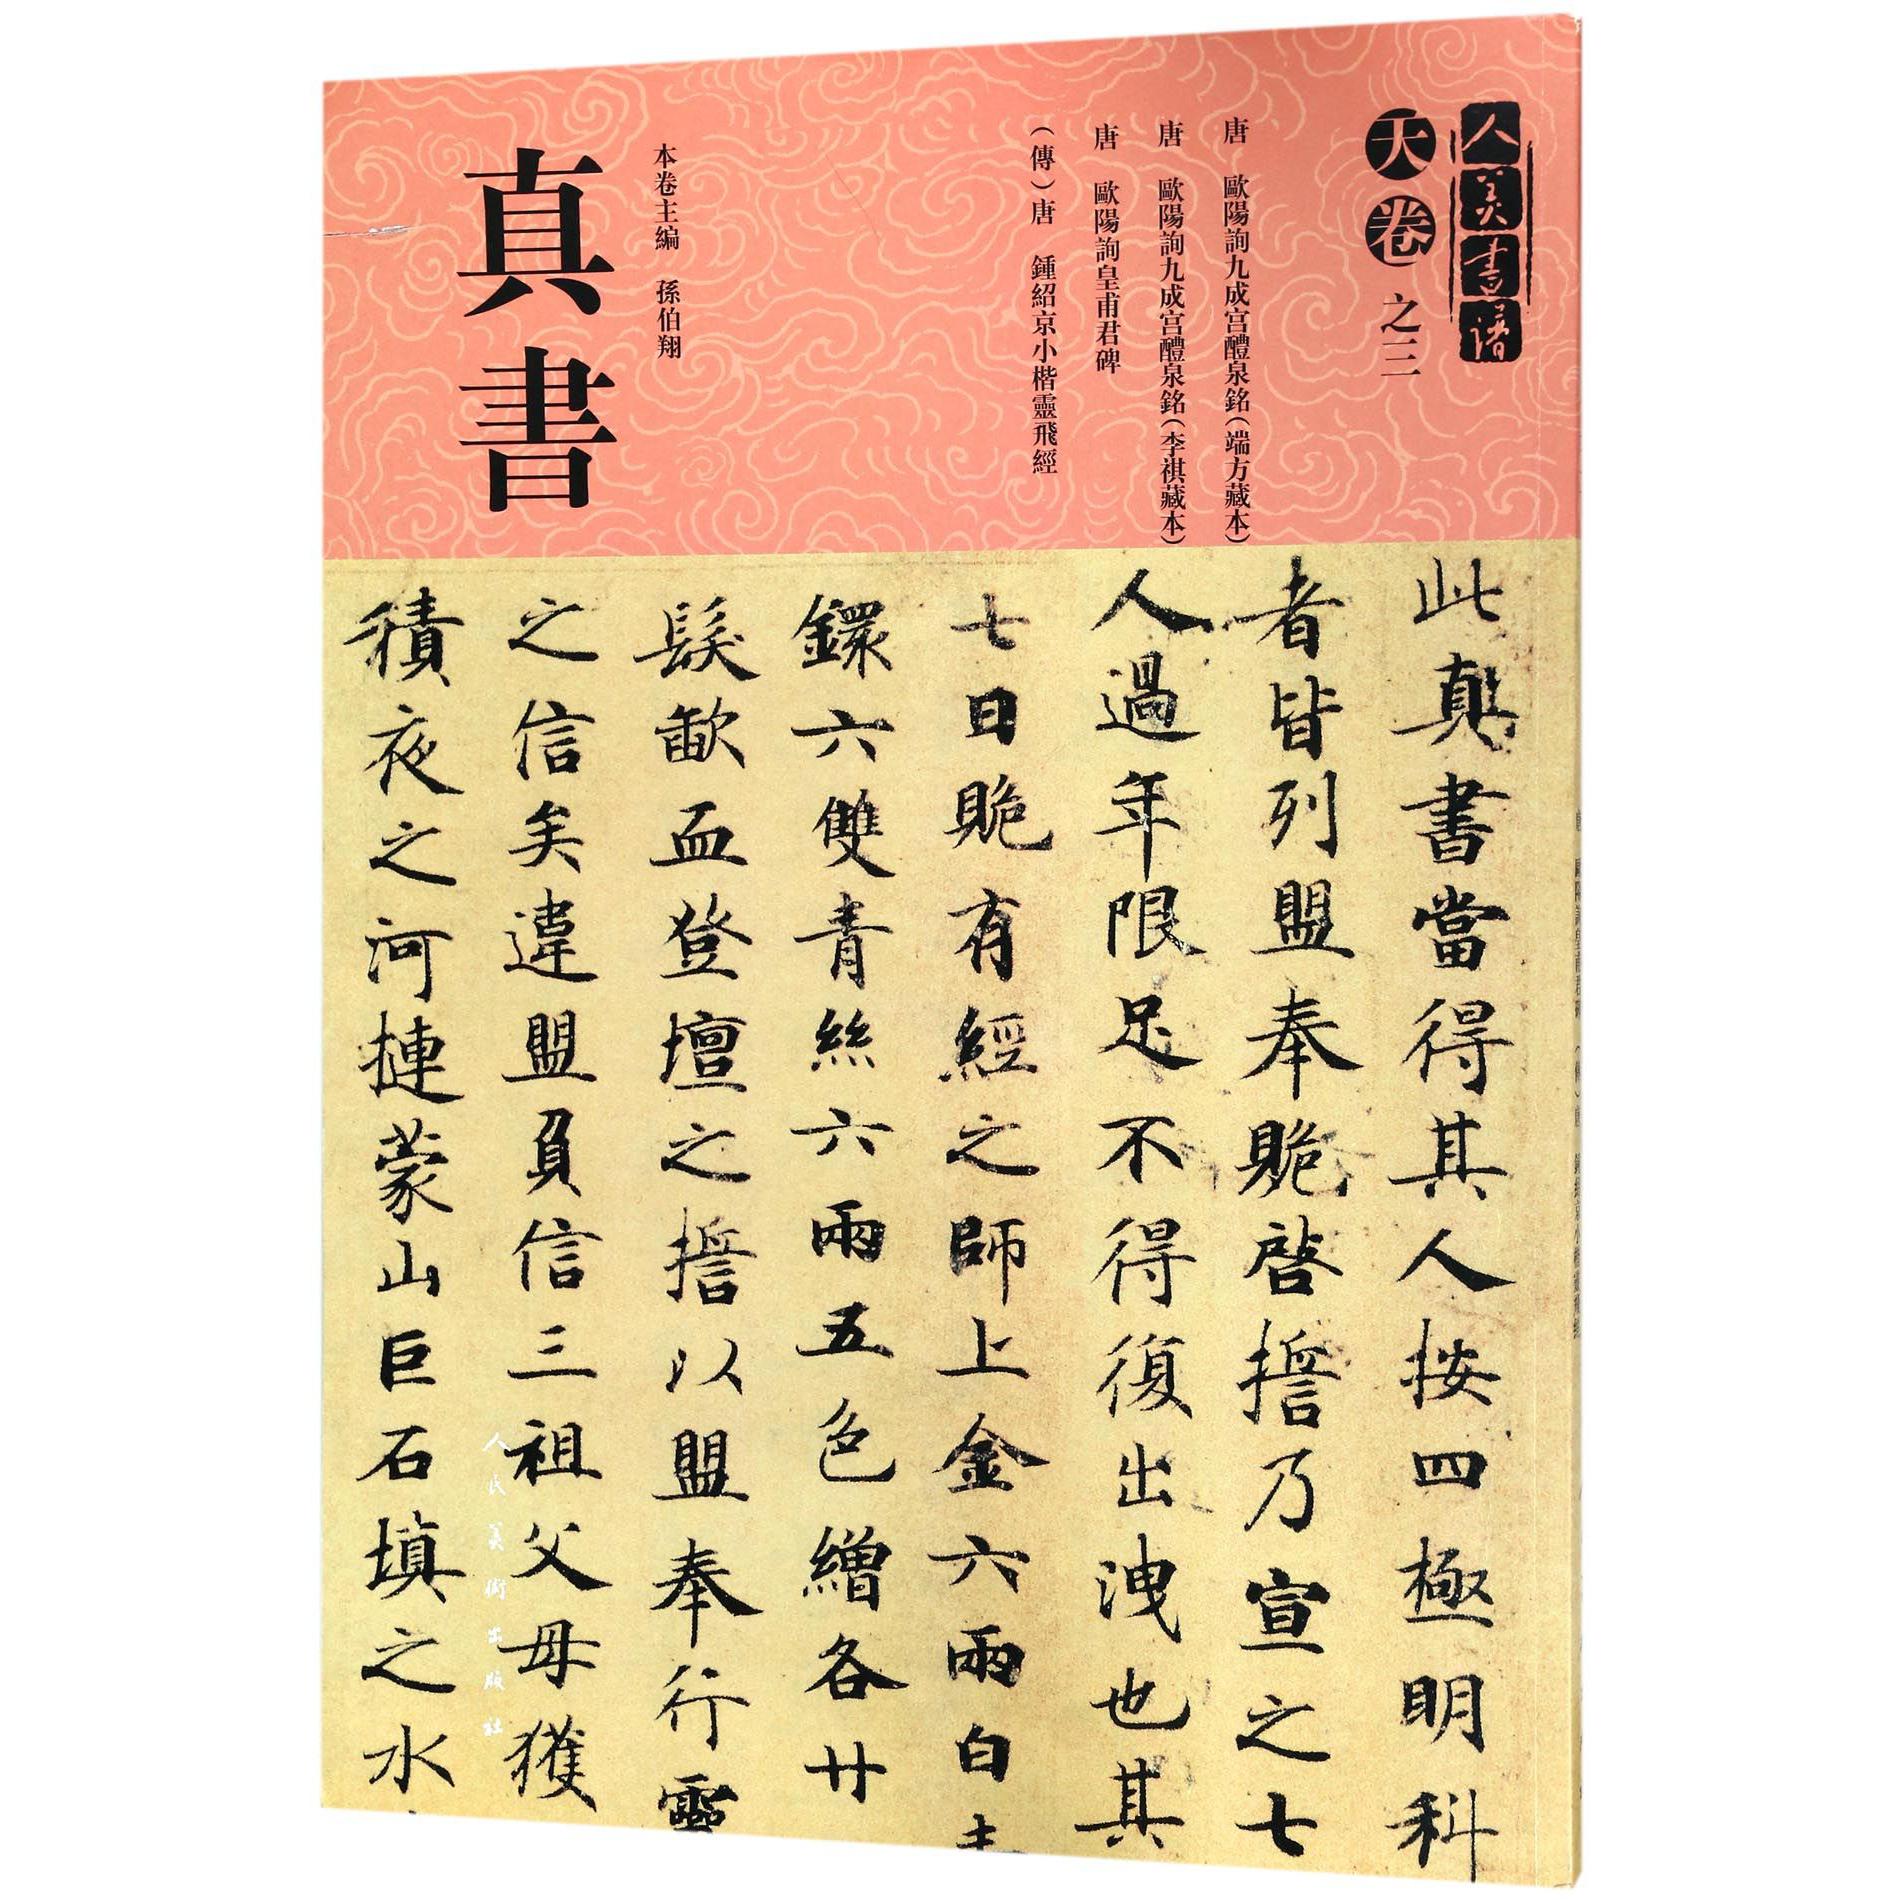 人美書譜
天卷 之三
唐 歐陽詢九成宫醴泉銘(端方藏本)
唐 歐陽詢九成宫醴泉銘(李祺藏本)
唐 歐陽詢皇甫君碑
(傳)唐 鍾紹京小楷靈飛經
本卷主編 孫伯翔
真書
此真書當得其人按四極明科
者皆列盟奉賧啓撎乃宣之七
人過年限足不得復出洩也其
七日賧有經之師上金六兩白
鐶六雙青絲六兩五色繒各廿
髮歃血登壇之擔以盟奉行靈
之信矣違盟負信三祖父母獲
積夜之河摙蒙山巨石填之水
人民美術出版社